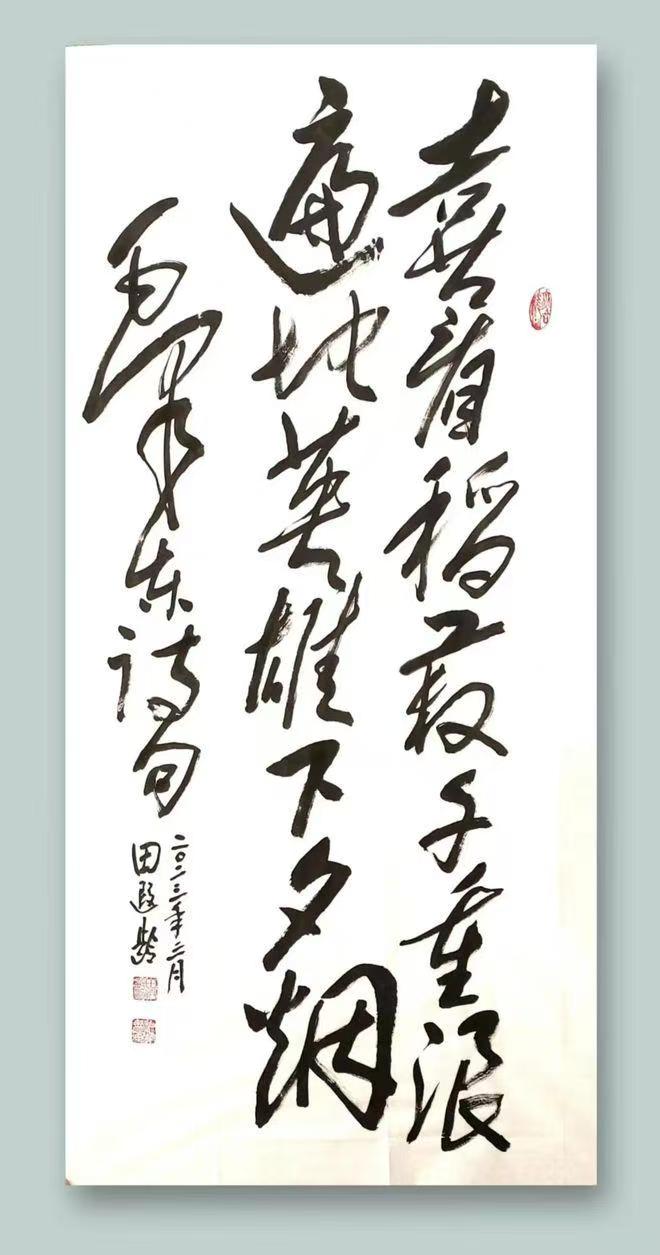 喜看稻菽千重浪
遍地英雄下夕烟
毛泽东诗句
二〇二三年三月
田遐龄